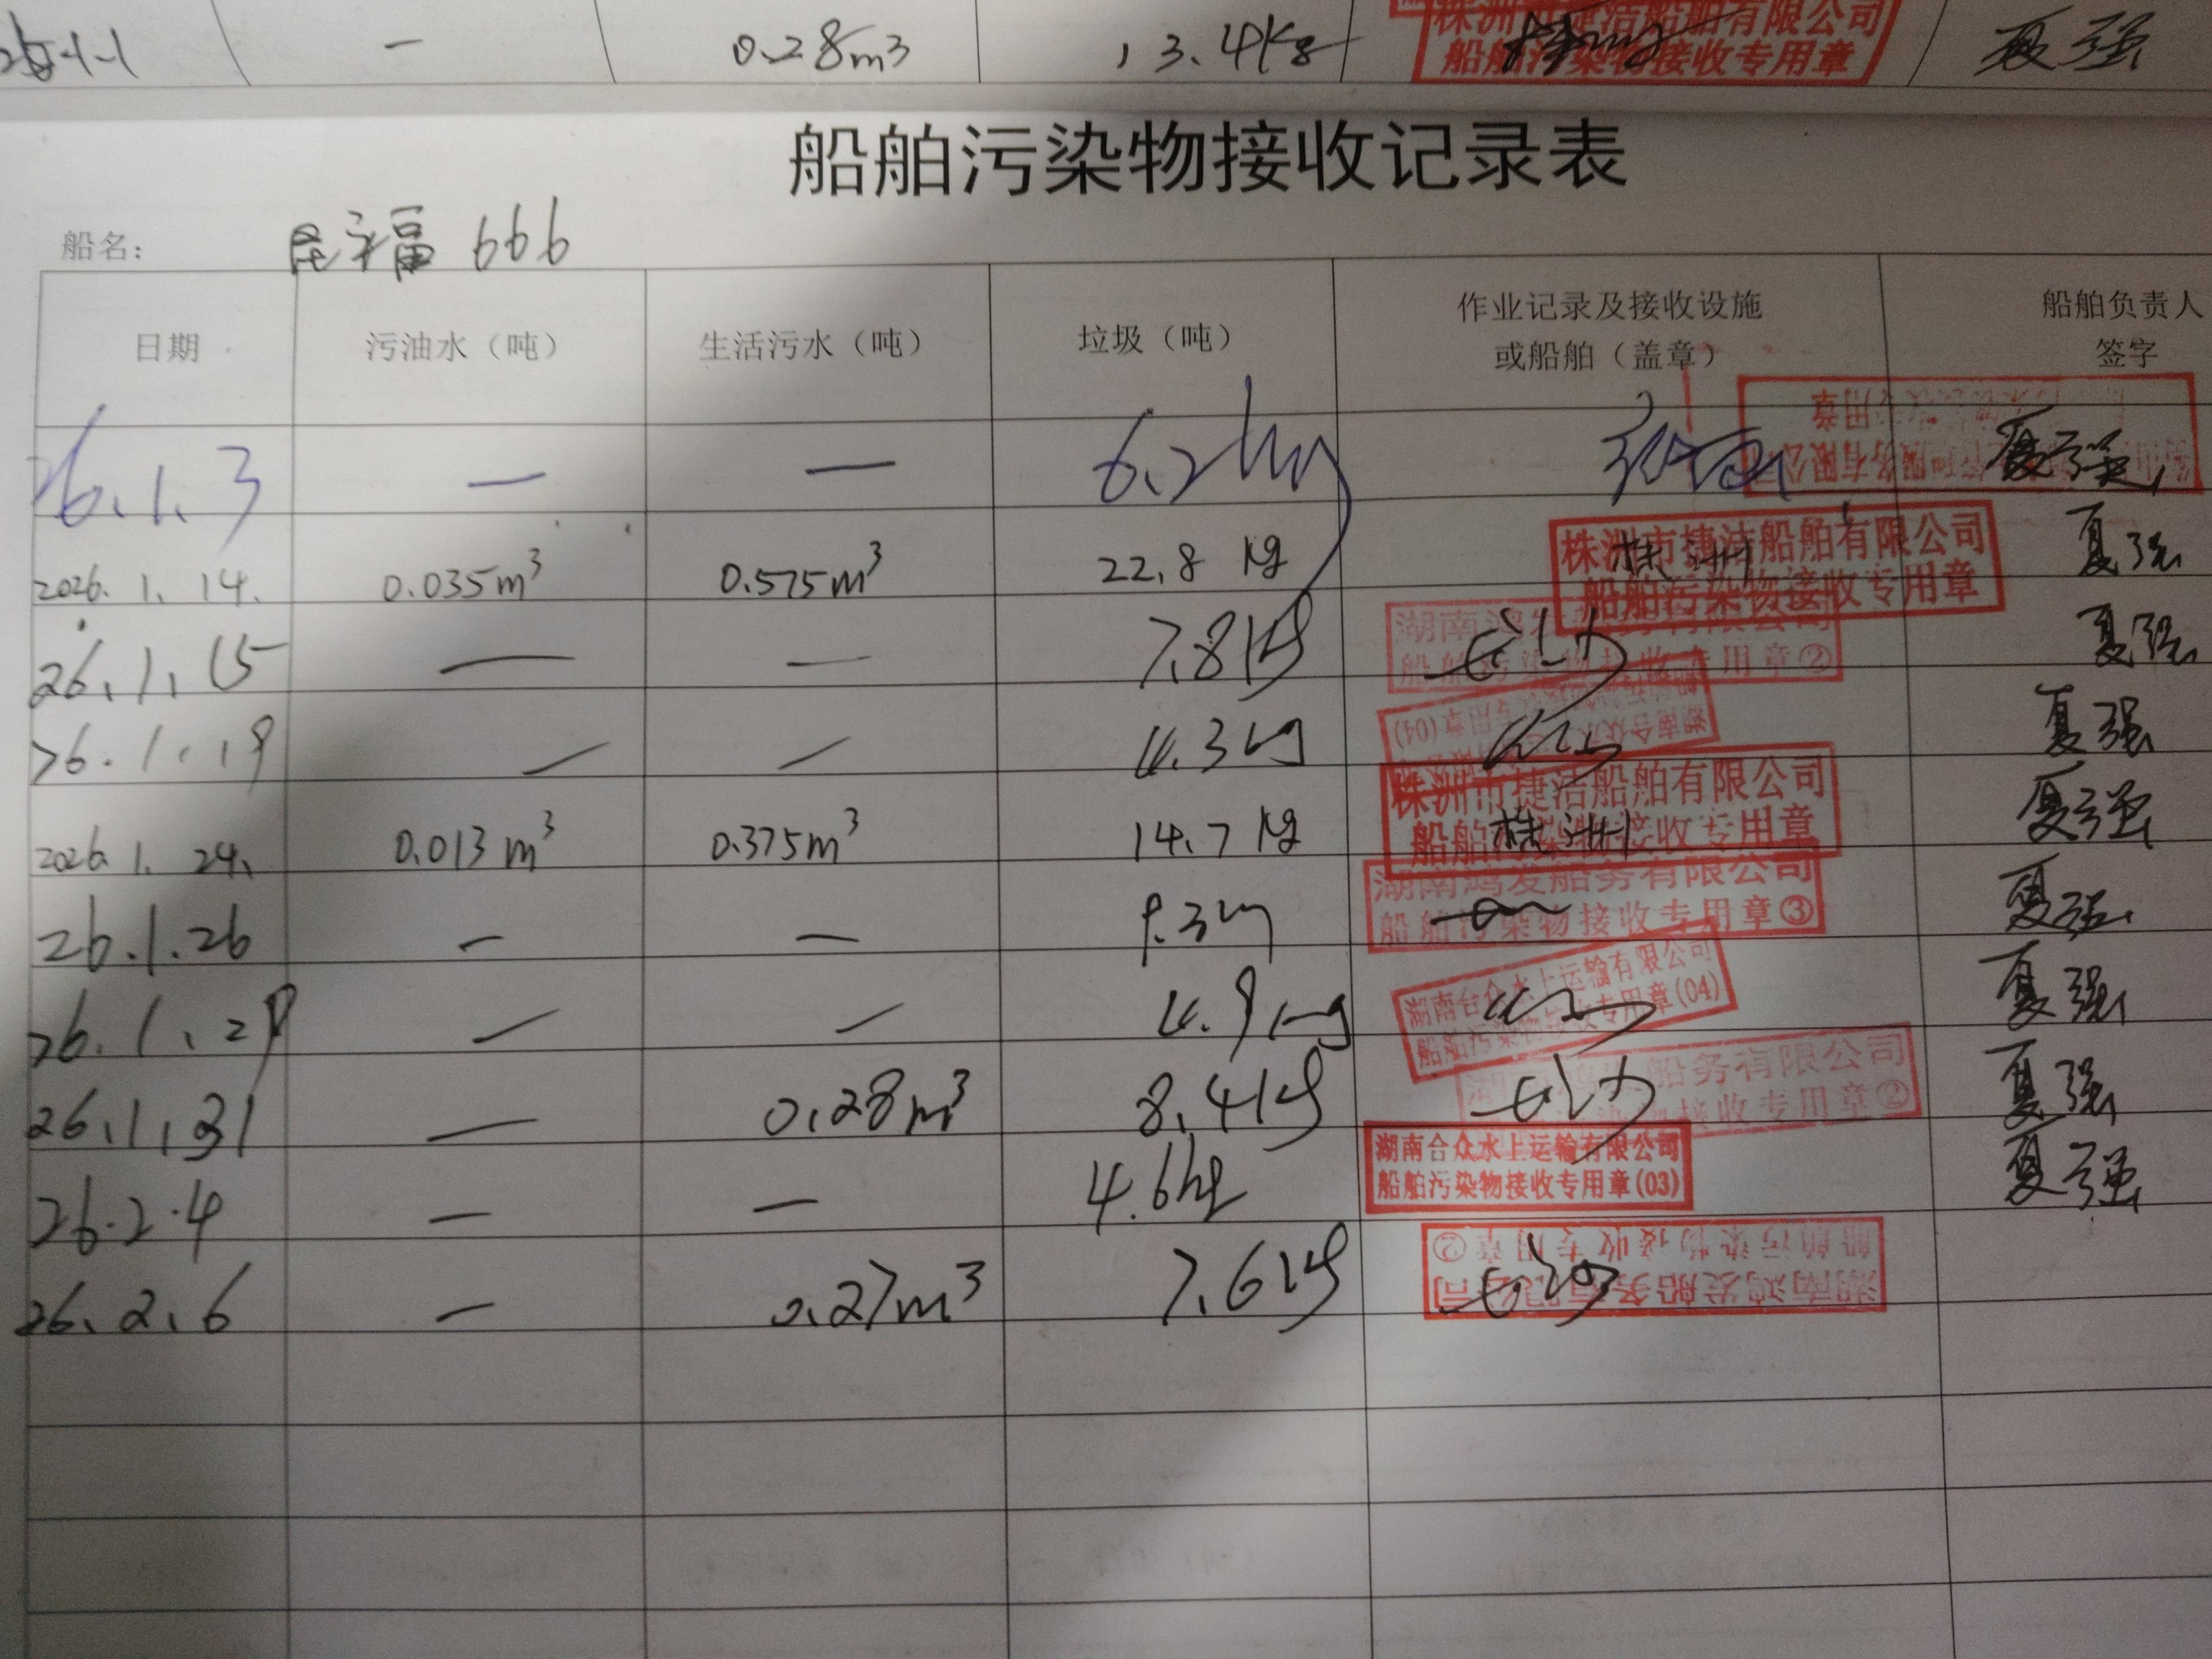 — 0.28m3 13.4Kg 株洲市捷洁船舶有限公司 夏强
船舶污染物接收专用章
船舶污染物接收记录表
船名： 民永福 666
日期 污油水（吨） 生活污水（吨） 垃圾（吨） 作业记录及接收设施 船舶负责人
或船舶（盖章） 签字
26.1.3 — — 6.2kg 夏强
2026.1.14. 0.035m³ 0.575m³ 22.8 kg 株洲 夏强
株洲市捷洁船舶有限公司
船舶污染物接收专用章
26.1.15 — — 7.8kg 夏强
湖南鸿发船务有限公司
船舶污染物接收专用章②
26.1.19 — — 4.3kg 夏强
湖南合众水上运输有限公司
船舶污染物接收专用章(04)
2026.1.24. 0.013m³ 0.375m³ 14.7kg 株洲 夏强
株洲市捷洁船舶有限公司
船舶污染物接收专用章
26.1.26 — — 9.3kg 夏强
湖南鸿发船务有限公司
船舶污染物接收专用章③
26.1.29 — — 4.9kg 夏强
湖南合众水上运输有限公司
船舶污染物接收专用章(04)
26.1.31 — 0.28m³ 8.4kg 夏强
船务有限公司
接收专用章②
26.2.4 — — 4.6kg 夏强
湖南合众水上运输有限公司
船舶污染物接收专用章(03)
26.2.6 — 0.27m³ 7.6kg
湖南鸿发船务有限公司
船舶污染物接收专用章②